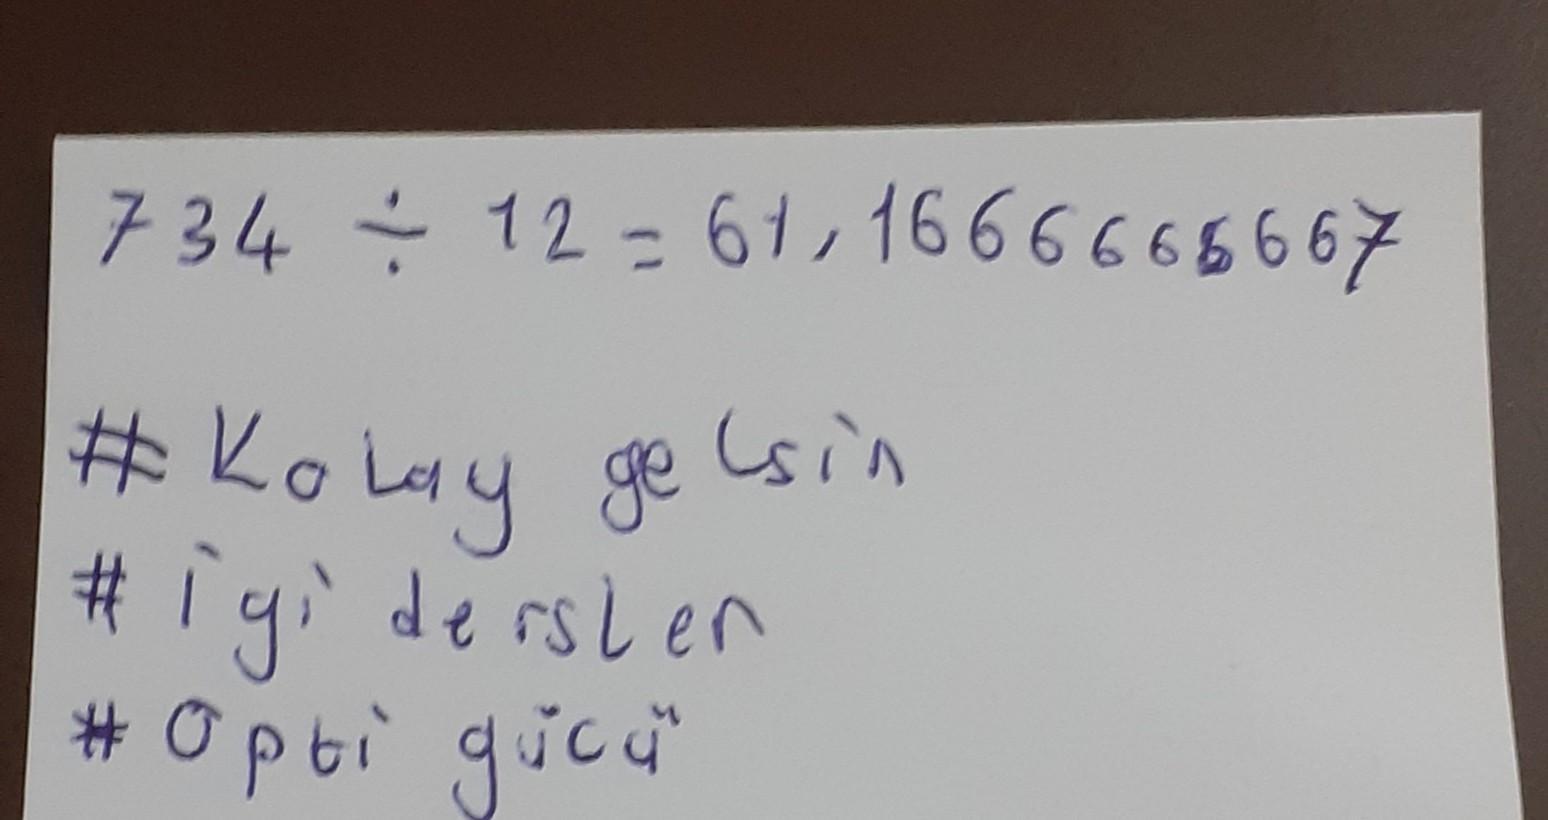 734 ÷ 12 = 61,1666666667
# Kolay gelsin
# iyi dersler
# Opti gücü